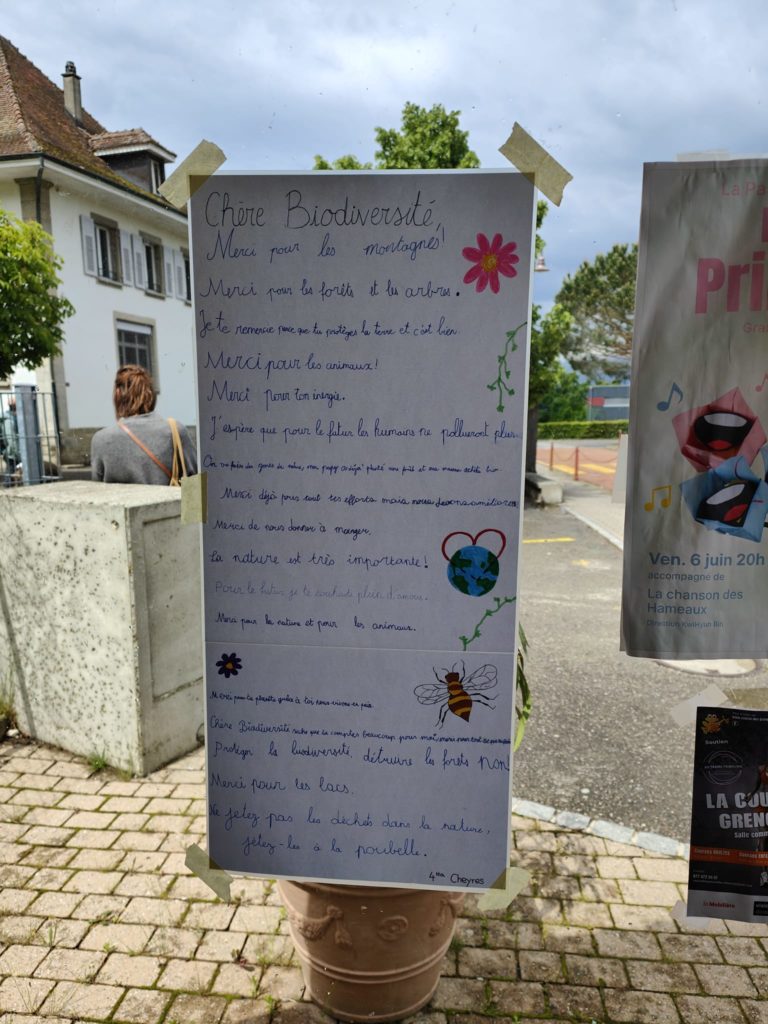 Chère Biodiversité,
Merci pour les montagnes!
Merci pour les forêts et les arbres.
Je te remercie parce que tu protèges la terre et c'est bien.
Merci pour les animaux!
Merci pour ton énergie.
J'espère que pour le futur les humains ne pollueront plus.
On va faire des gestes de mon papy a déjà planté une forêt et ma maman achète bio.
Merci déjà pour tout tes efforts mais nous devons améliorer
Merci de nous donner à manger.
La nature est très importante!
Pour le futur, je te souhaite plein d'amour.
Merci pour la nature et pour les animaux.
Merci pour la planète grâce à toi nous vivons en paix.
Chère Biodiversité sache que tu comptes beaucoup pour moi, merci pour tout
Protéger la biodiversité, détruire les forêts non!
Merci pour les lacs.
Ne jetez pas les déchets dans la nature,
jetez-les à la poubelle.
4ma Cheyres
La Pa
Pri
Gra
Ven. 6 juin 20h
accompagné de
La chanson des
Hameaux
Direction KwiHyun Bin
Soutien
LA COU
GRENO
Salle comm